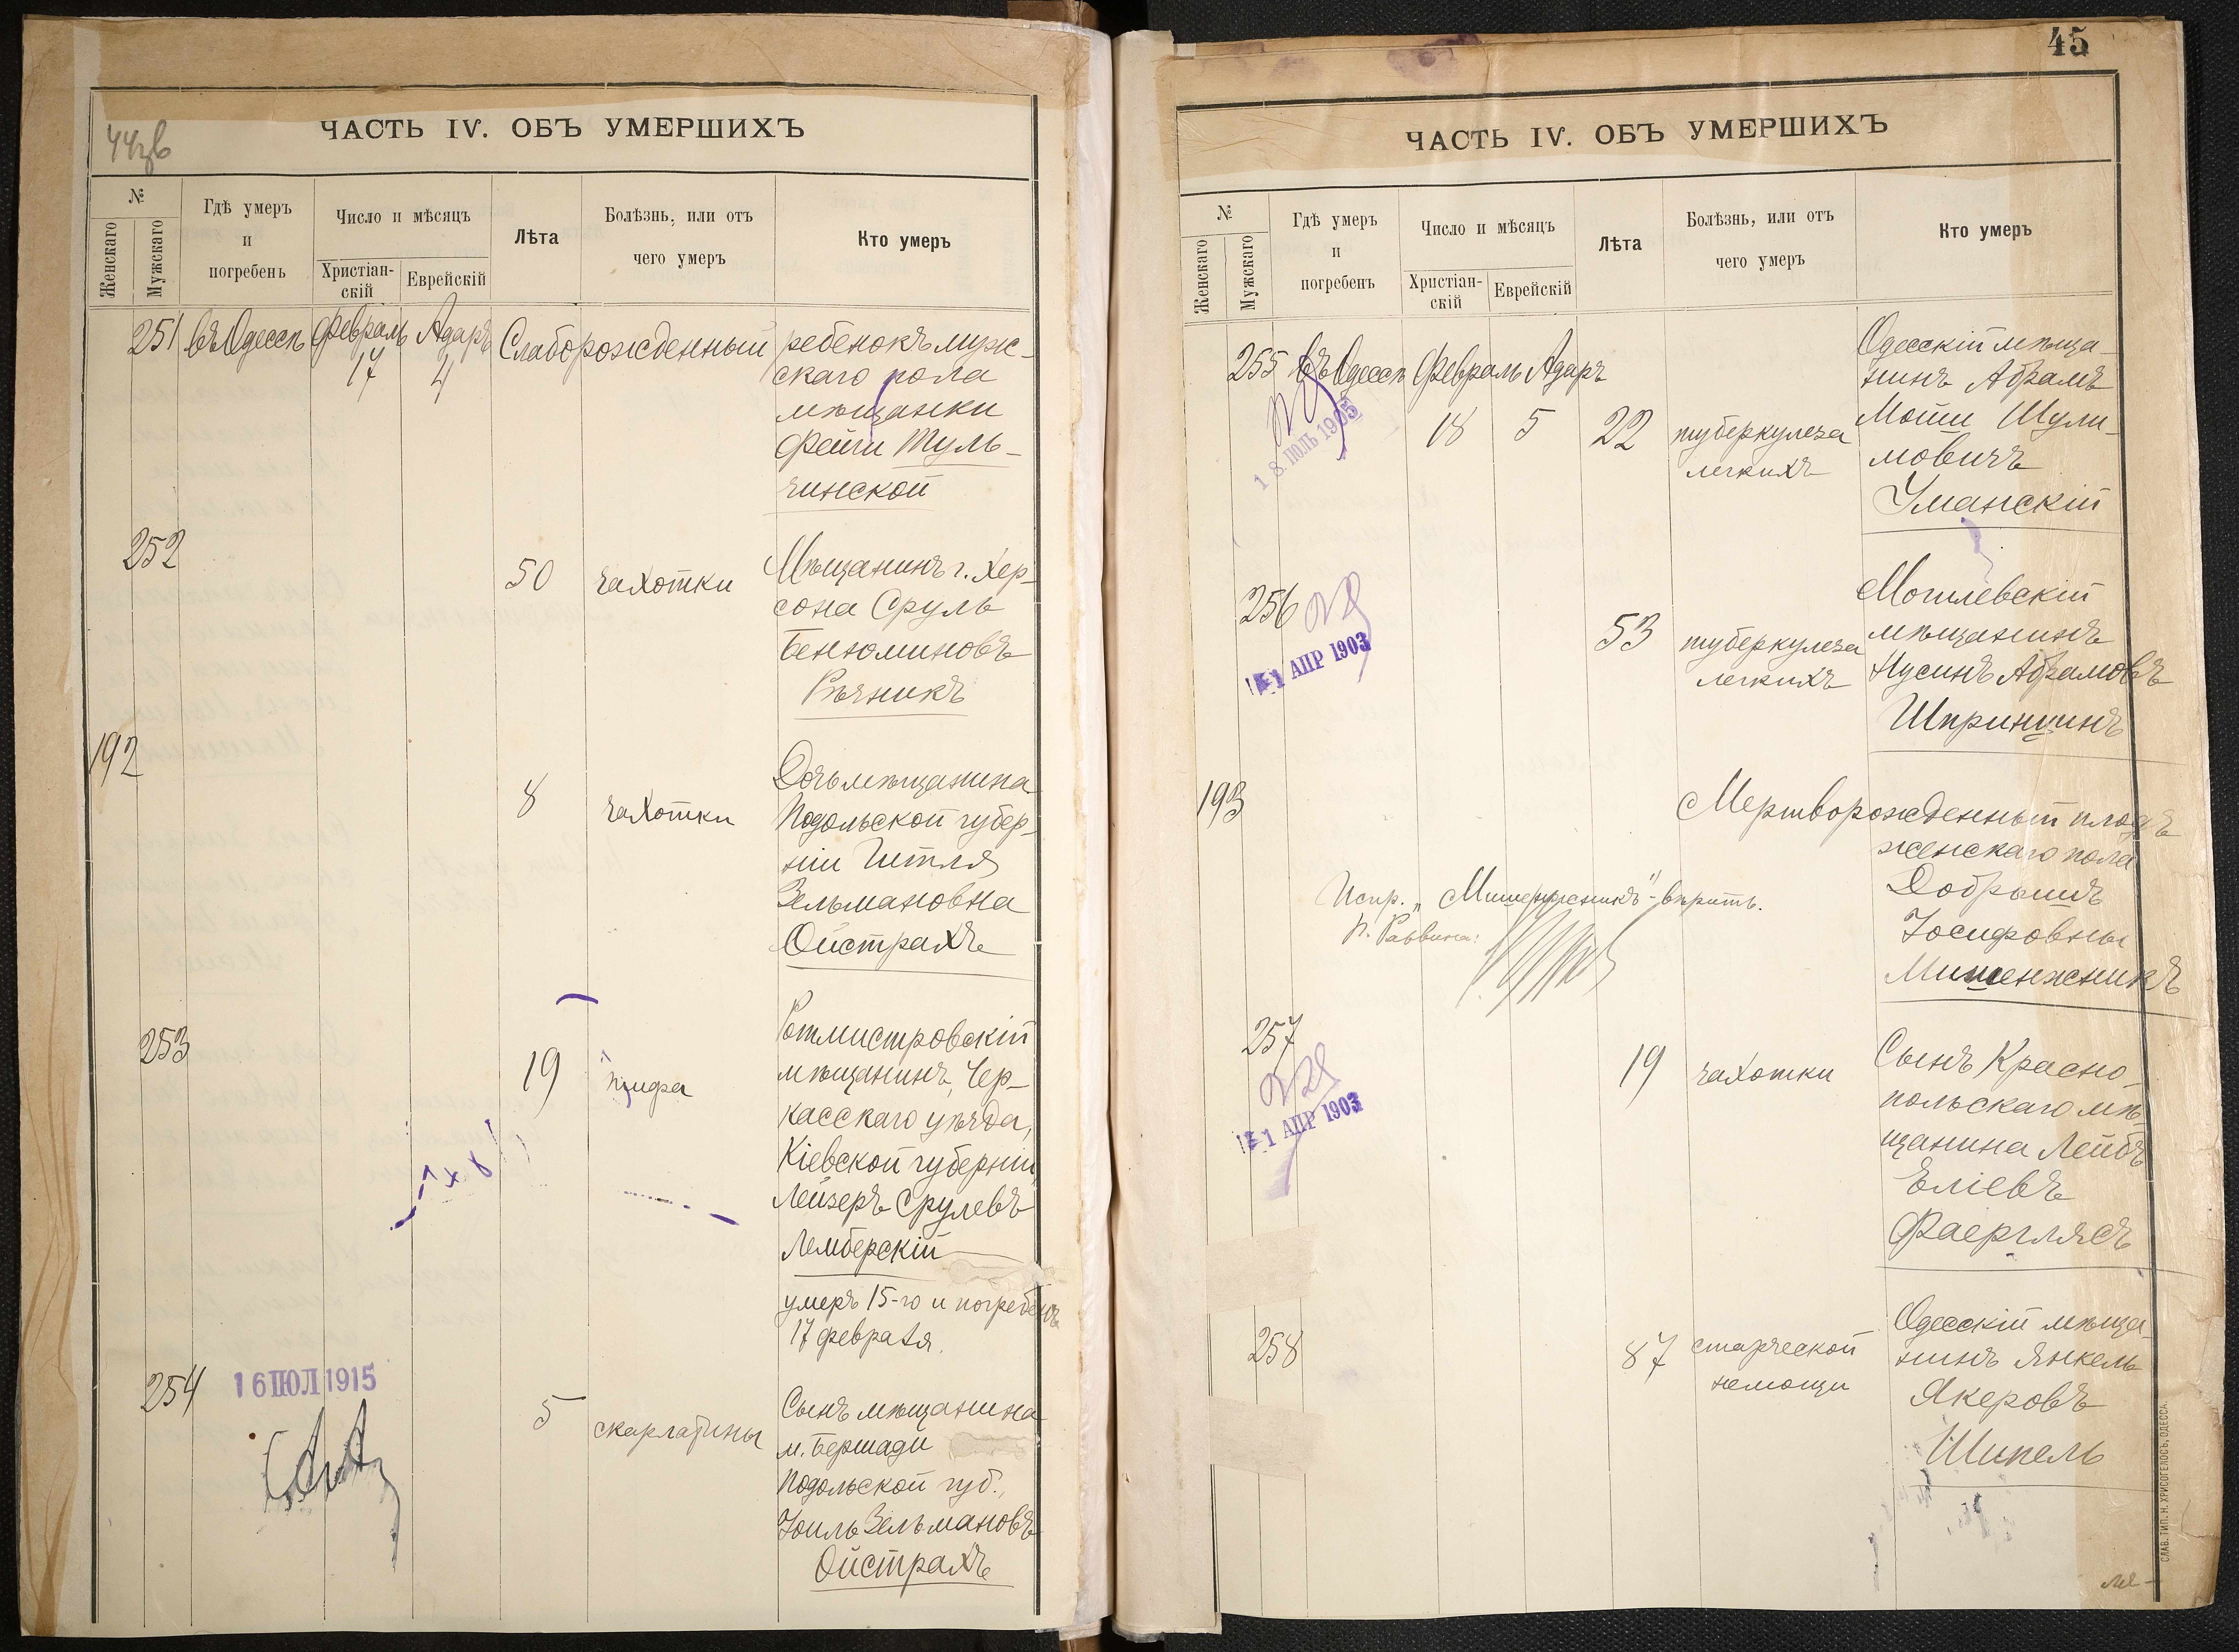 44об
ЧАСТЬ IV. ОБЪ УМЕРШИХЪ
№
Женскаго
Мужскаго
Гдѣ умеръ
и
погребенъ
Число и мѣсяцъ
Христіан-
скій
Еврейскій
Лѣта
Болѣзнь, или отъ
чего умеръ
Кто умеръ
251 въ Одессѣ Февраль Адаръ Слаборожденный ребенокъ муж-
17 4 скаго пола
мѣщанки
Фейги Туль-
чинской
252
50 чахотки Мѣщанинъ г. Хер-
сона Сруль
Бенюминовъ
Рѣчникъ
192
8 чахотки Дочь мѣщанина
Подольской губер-
ніи Гитля
Зельмановна
Ойстрахъ
253
19 тифа Ротмистровскій
мѣщанинъ, Чер-
касскаго уѣзда,
Кіевской губерніи,
Лейзеръ Срулевъ
Лемберскій
умеръ 15-го и погребенъ
17 февраля.
254 16 ІЮЛ 1915
5 скарлатины Сынъ мѣщанина
м. Бершади
Подольской губ.,
Іоиль Зельмановъ
Ойстрахъ
45
ЧАСТЬ IV. ОБЪ УМЕРШИХЪ
№
Женскаго
Мужскаго
Гдѣ умеръ
и
погребенъ
Число и мѣсяцъ
Христіан-
скій
Еврейскій
Лѣта
Болѣзнь, или отъ
чего умеръ
Кто умеръ
255 въ Одессѣ Февраль Адаръ Одесскій мѣща-
нинъ Абрамъ
18 5 22 туберкулеза Мошко Шули-
легкихъ мовичъ
Уманскій
18 ІЮЛЬ 1905
256
1 АПР 1903
53 туберкулеза Могилевскій
легкихъ мѣщанинъ
Нусинъ Абрамовъ
Шпринцинъ
193
Мертворожденный плодъ
женскаго пола
Добрышъ
Іосифовны
Мишенжникъ
Испр. „Мишенжникъ" - вѣрить.
И. Раввина:
257
1 АПР 1903
19 чахотки Сынъ Красно-
польскаго мѣ-
щанина Лейбъ
Еліевъ
Фаерглясъ
258
87 старческой Одесскій мѣща-
немощи нинъ Янкель
Якеровъ
Шипель
СЛАВ. ТИП. Н. ХРИСОГЕЛОСЪ, ОДЕССА.